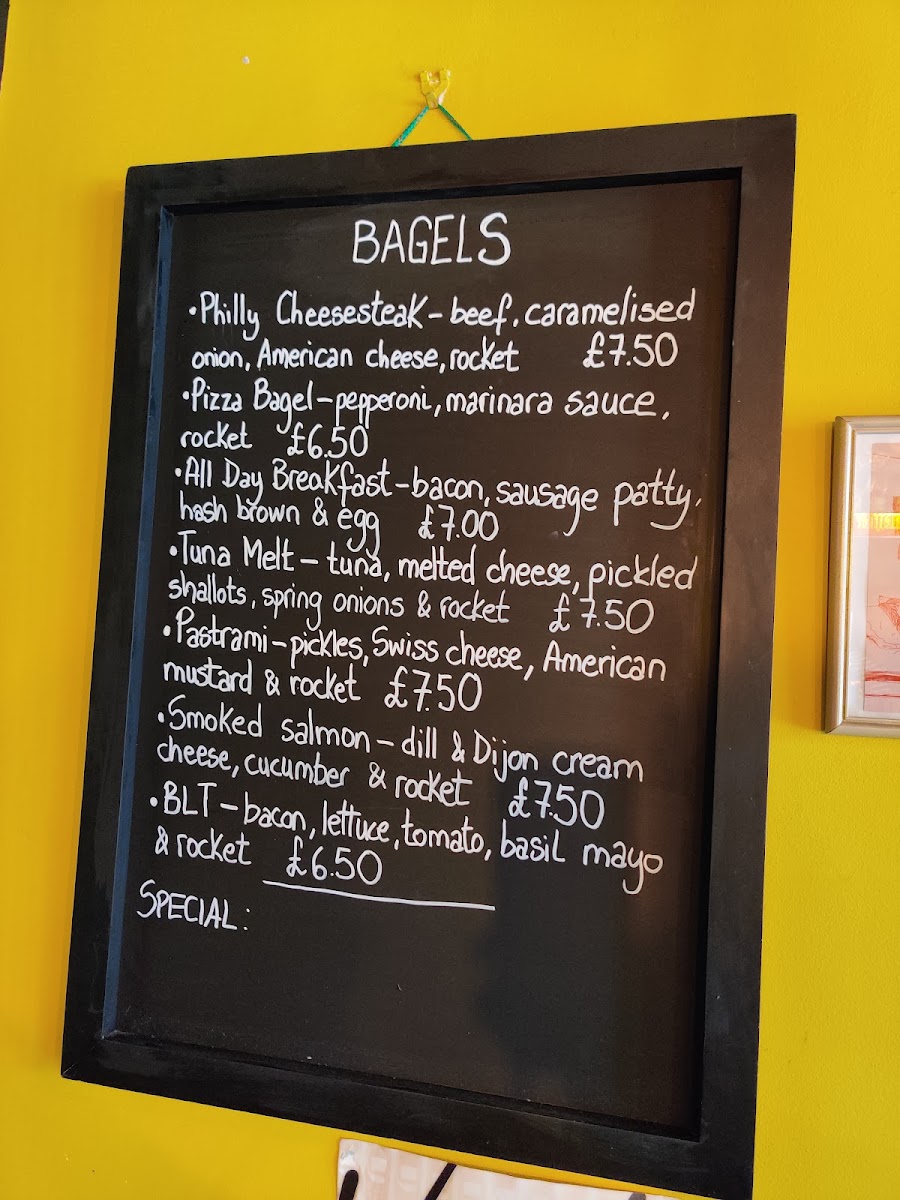 BAGELS
•Philly Cheesesteak - beef, caramelised
onion, American cheese, rocket £7.50
•Pizza Bagel - pepperoni, marinara sauce,
rocket £6.50
•All Day Breakfast - bacon, sausage patty,
hash brown & egg £7.00
•Tuna Melt - tuna, melted cheese, pickled
shallots, spring onions & rocket £7.50
•Pastrami - pickles, Swiss cheese, American
mustard & rocket £7.50
•Smoked salmon - dill & Dijon cream
cheese, cucumber & rocket £7.50
•BLT - bacon, lettuce, tomato, basil mayo
& rocket £6.50
SPECIAL: